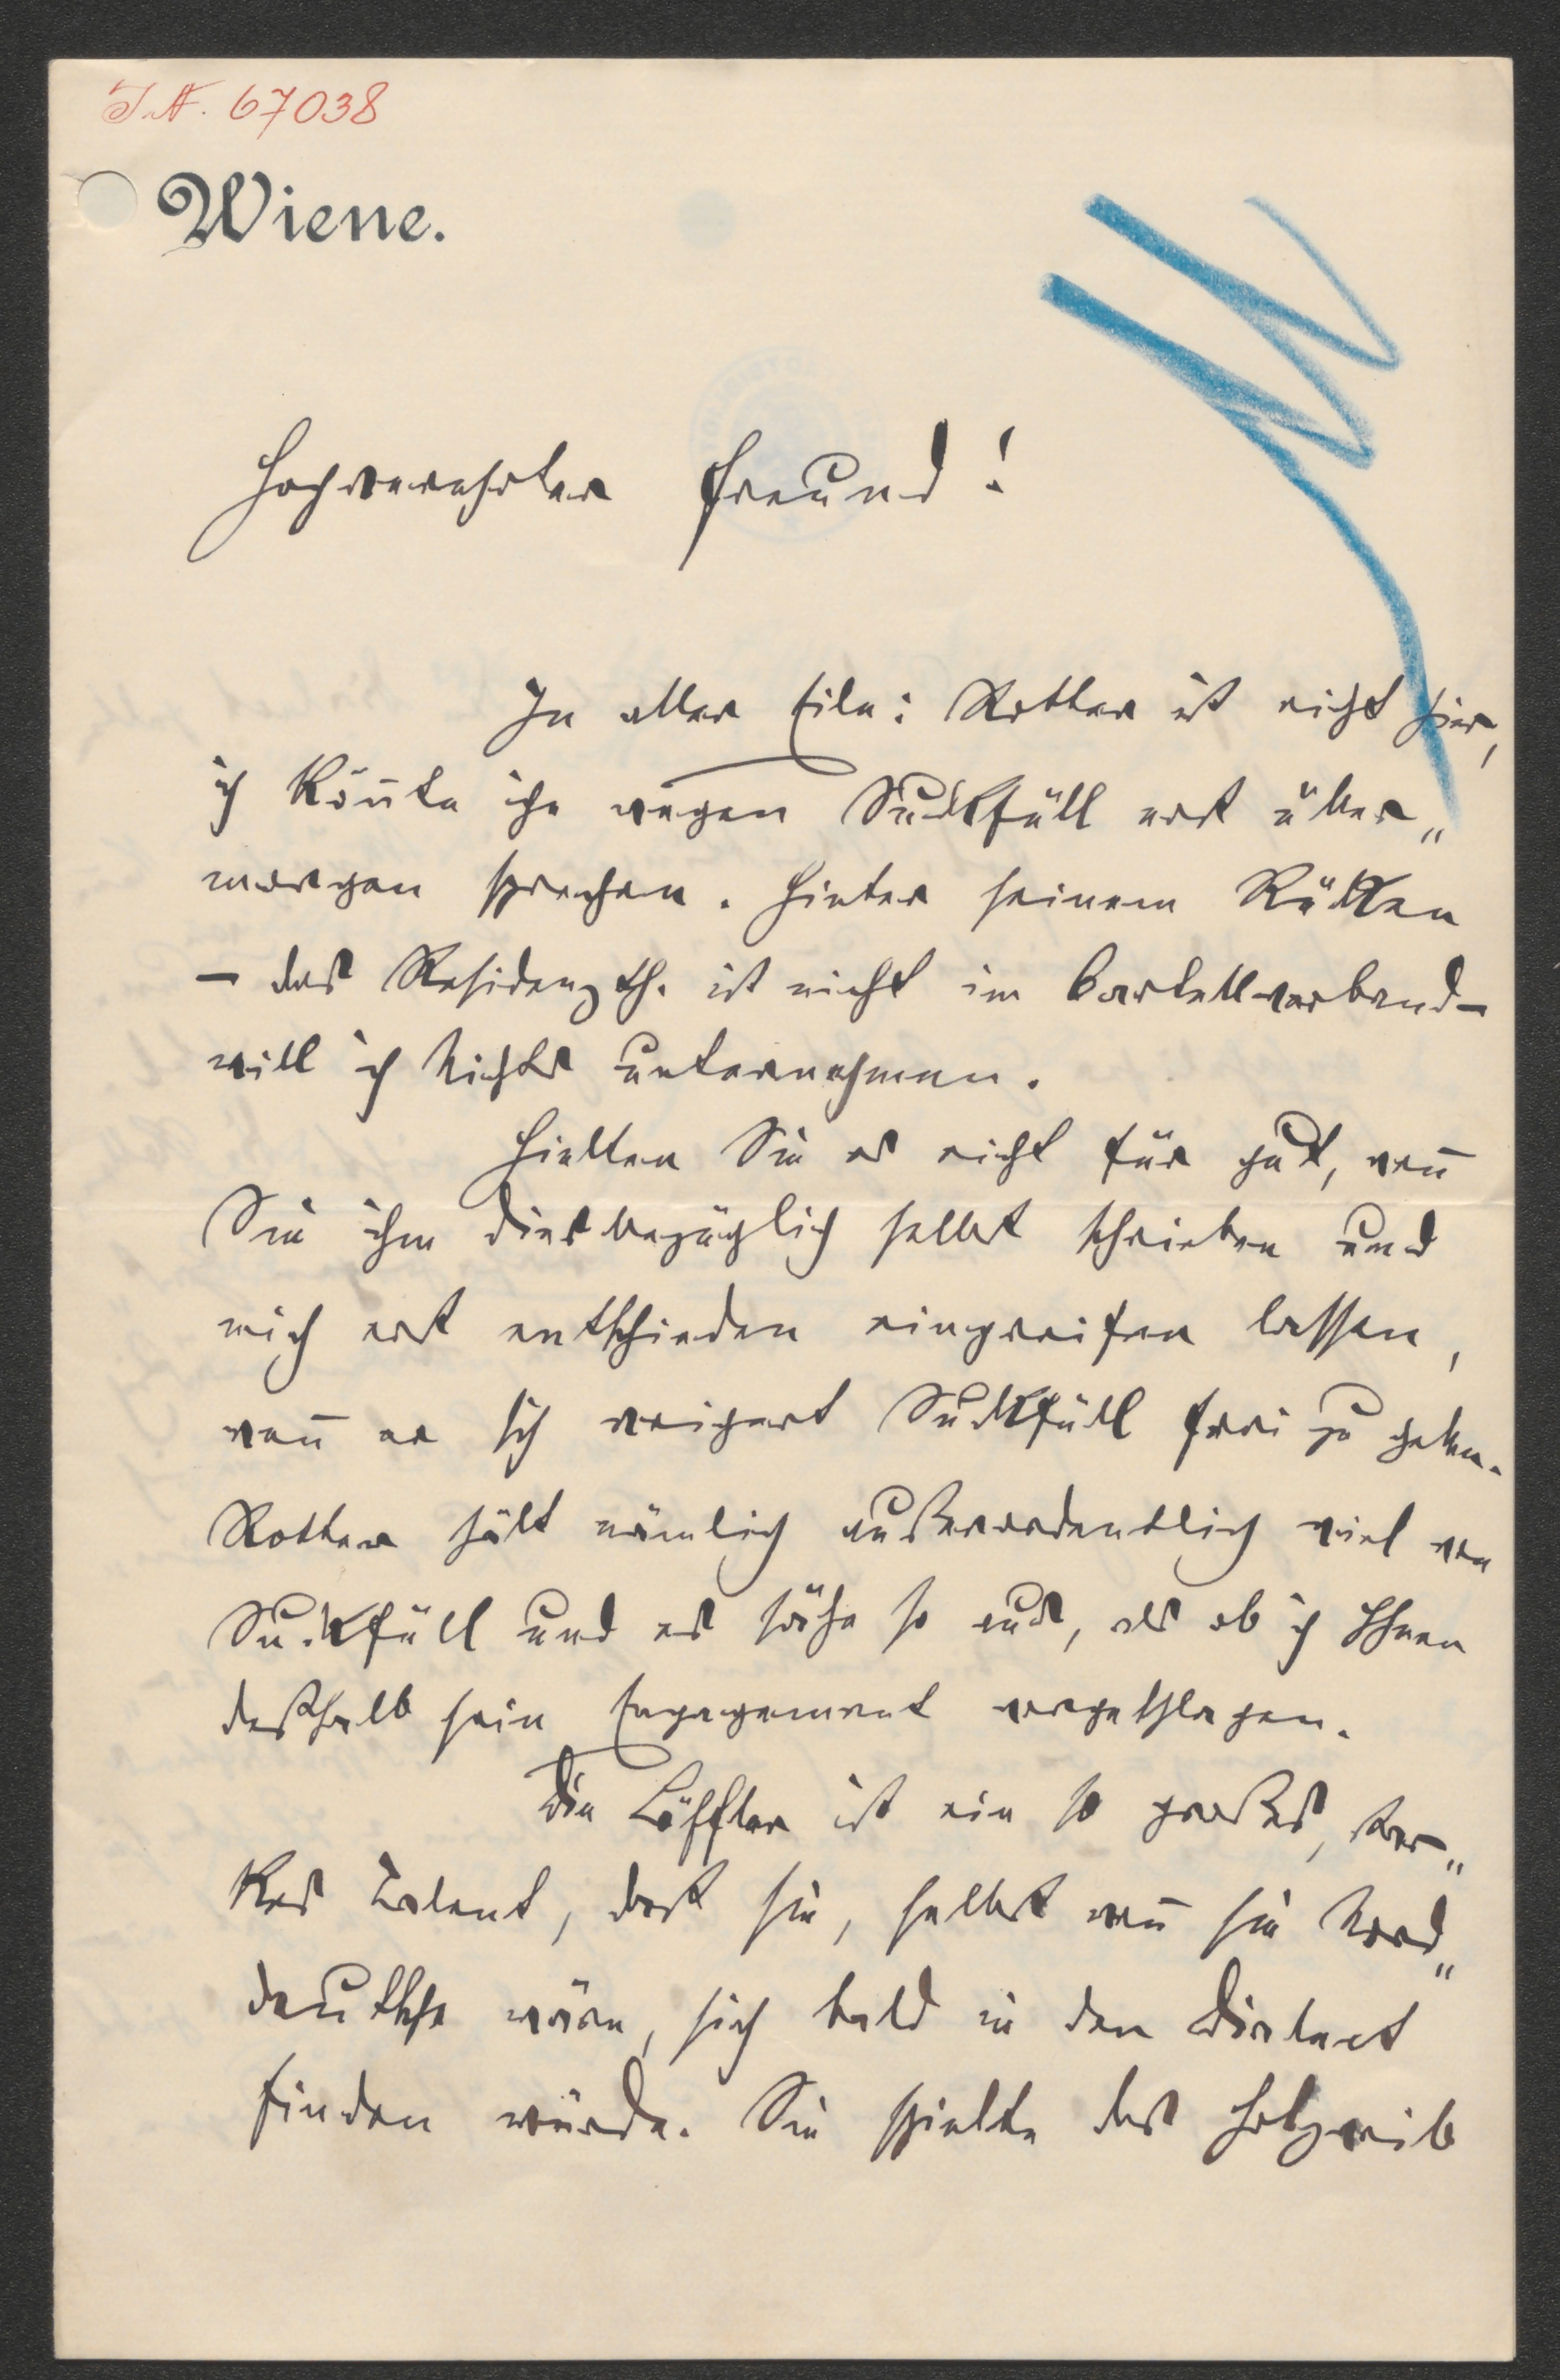 I.N. 67038
Wiene.
Hochverehrter Freund!
In aller Eile: Rotter ist nicht hier,
ich kön̄te ihn wegen Suckfüll erst über„
morgen sprechen. Hinter seinem Rücken
– das Residenzth. ist nicht im Cartellverband –
will ich Nichts unternehmen.
Hielten Sie es nicht für gut, wen̄
Sie ihm diesbezüglich selbst schrieben und
mich erst entschieden eingreifen lassen,
wen̄ er sich weigert Suckfüll frei zu geben.
Rotter hält nämlich außerordentlich viel von
Suckfüll und es sähe so aus, als ob ich Ihnen
deßhalb sein Engagement vorgeschlagen.
Die Löffler ist ein so großes, star„
kes Talent, daß sie, selbst wen̄ sie Nord„
deutsche wäre, sich bald in den Dialect
finden würde. Sie spielte das Holzweib